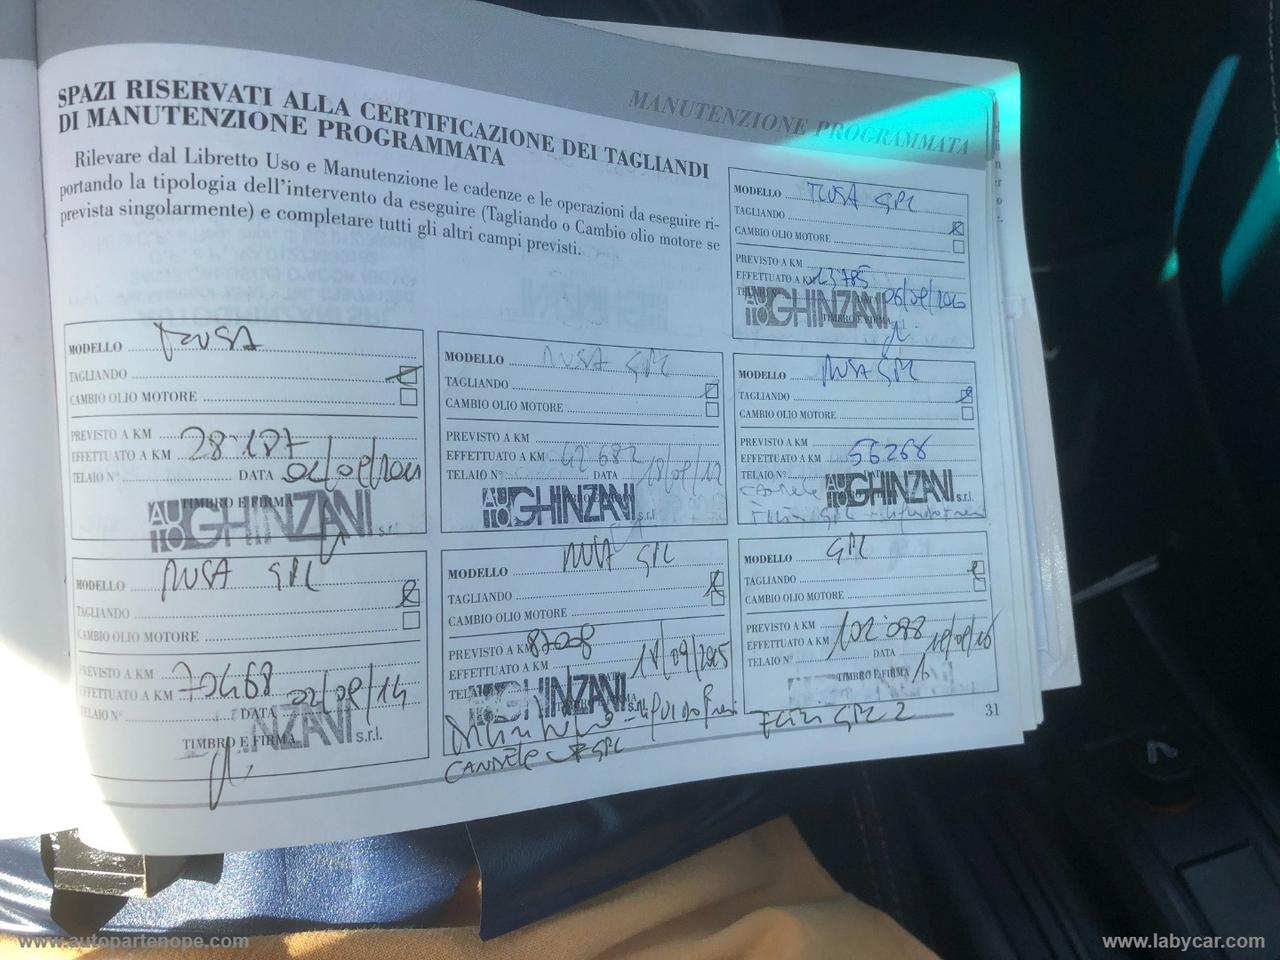 MANUTENZIONE PROGRAMMATA
SPAZI RISERVATI ALLA CERTIFICAZIONE DEI TAGLIANDI
DI MANUTENZIONE PROGRAMMATA
Rilevare dal Libretto Uso e Manutenzione le cadenze e le operazioni da eseguire ri-
portando la tipologia dell'intervento da eseguire (Tagliando o Cambio olio motore se
prevista singolarmente) e completare tutti gli altri campi previsti.
MODELLO MUSA GPL
TAGLIANDO
CAMBIO OLIO MOTORE
PREVISTO A KM
EFFETTUATO A KM 13785
AUTO GHINZANI
TIMBRO E FIRMA
MODELLO MUSA
TAGLIANDO
CAMBIO OLIO MOTORE
PREVISTO A KM
EFFETTUATO A KM 28187
TELAIO N° DATA
TIMBRO E FIRMA
AUTO GHINZANI s.r.l.
MODELLO MUSA GPL
TAGLIANDO
CAMBIO OLIO MOTORE
PREVISTO A KM
EFFETTUATO A KM 42682
TELAIO N° DATA
AUTO GHINZANI s.r.l.
MODELLO MUSA GPL
TAGLIANDO
CAMBIO OLIO MOTORE
PREVISTO A KM
EFFETTUATO A KM 56268
TELAIO N°
AUTO GHINZANI s.r.l.
MODELLO MUSA GPL
TAGLIANDO
CAMBIO OLIO MOTORE
PREVISTO A KM
EFFETTUATO A KM 70468
TELAIO N° DATA
TIMBRO E FIRMA
GHINZANI s.r.l.
MODELLO MUSA GPL
TAGLIANDO
CAMBIO OLIO MOTORE
PREVISTO A KM 87008
EFFETTUATO A KM 18/09/2015
GHINZANI s.r.l.
liquido freni
CANDELE GPL
MODELLO GPL
TAGLIANDO
CAMBIO OLIO MOTORE
PREVISTO A KM
EFFETTUATO A KM 102088
TELAIO N° DATA
TIMBRO E FIRMA
Filtri GPL 2
31
www.autopartenope.com
www.labycar.com